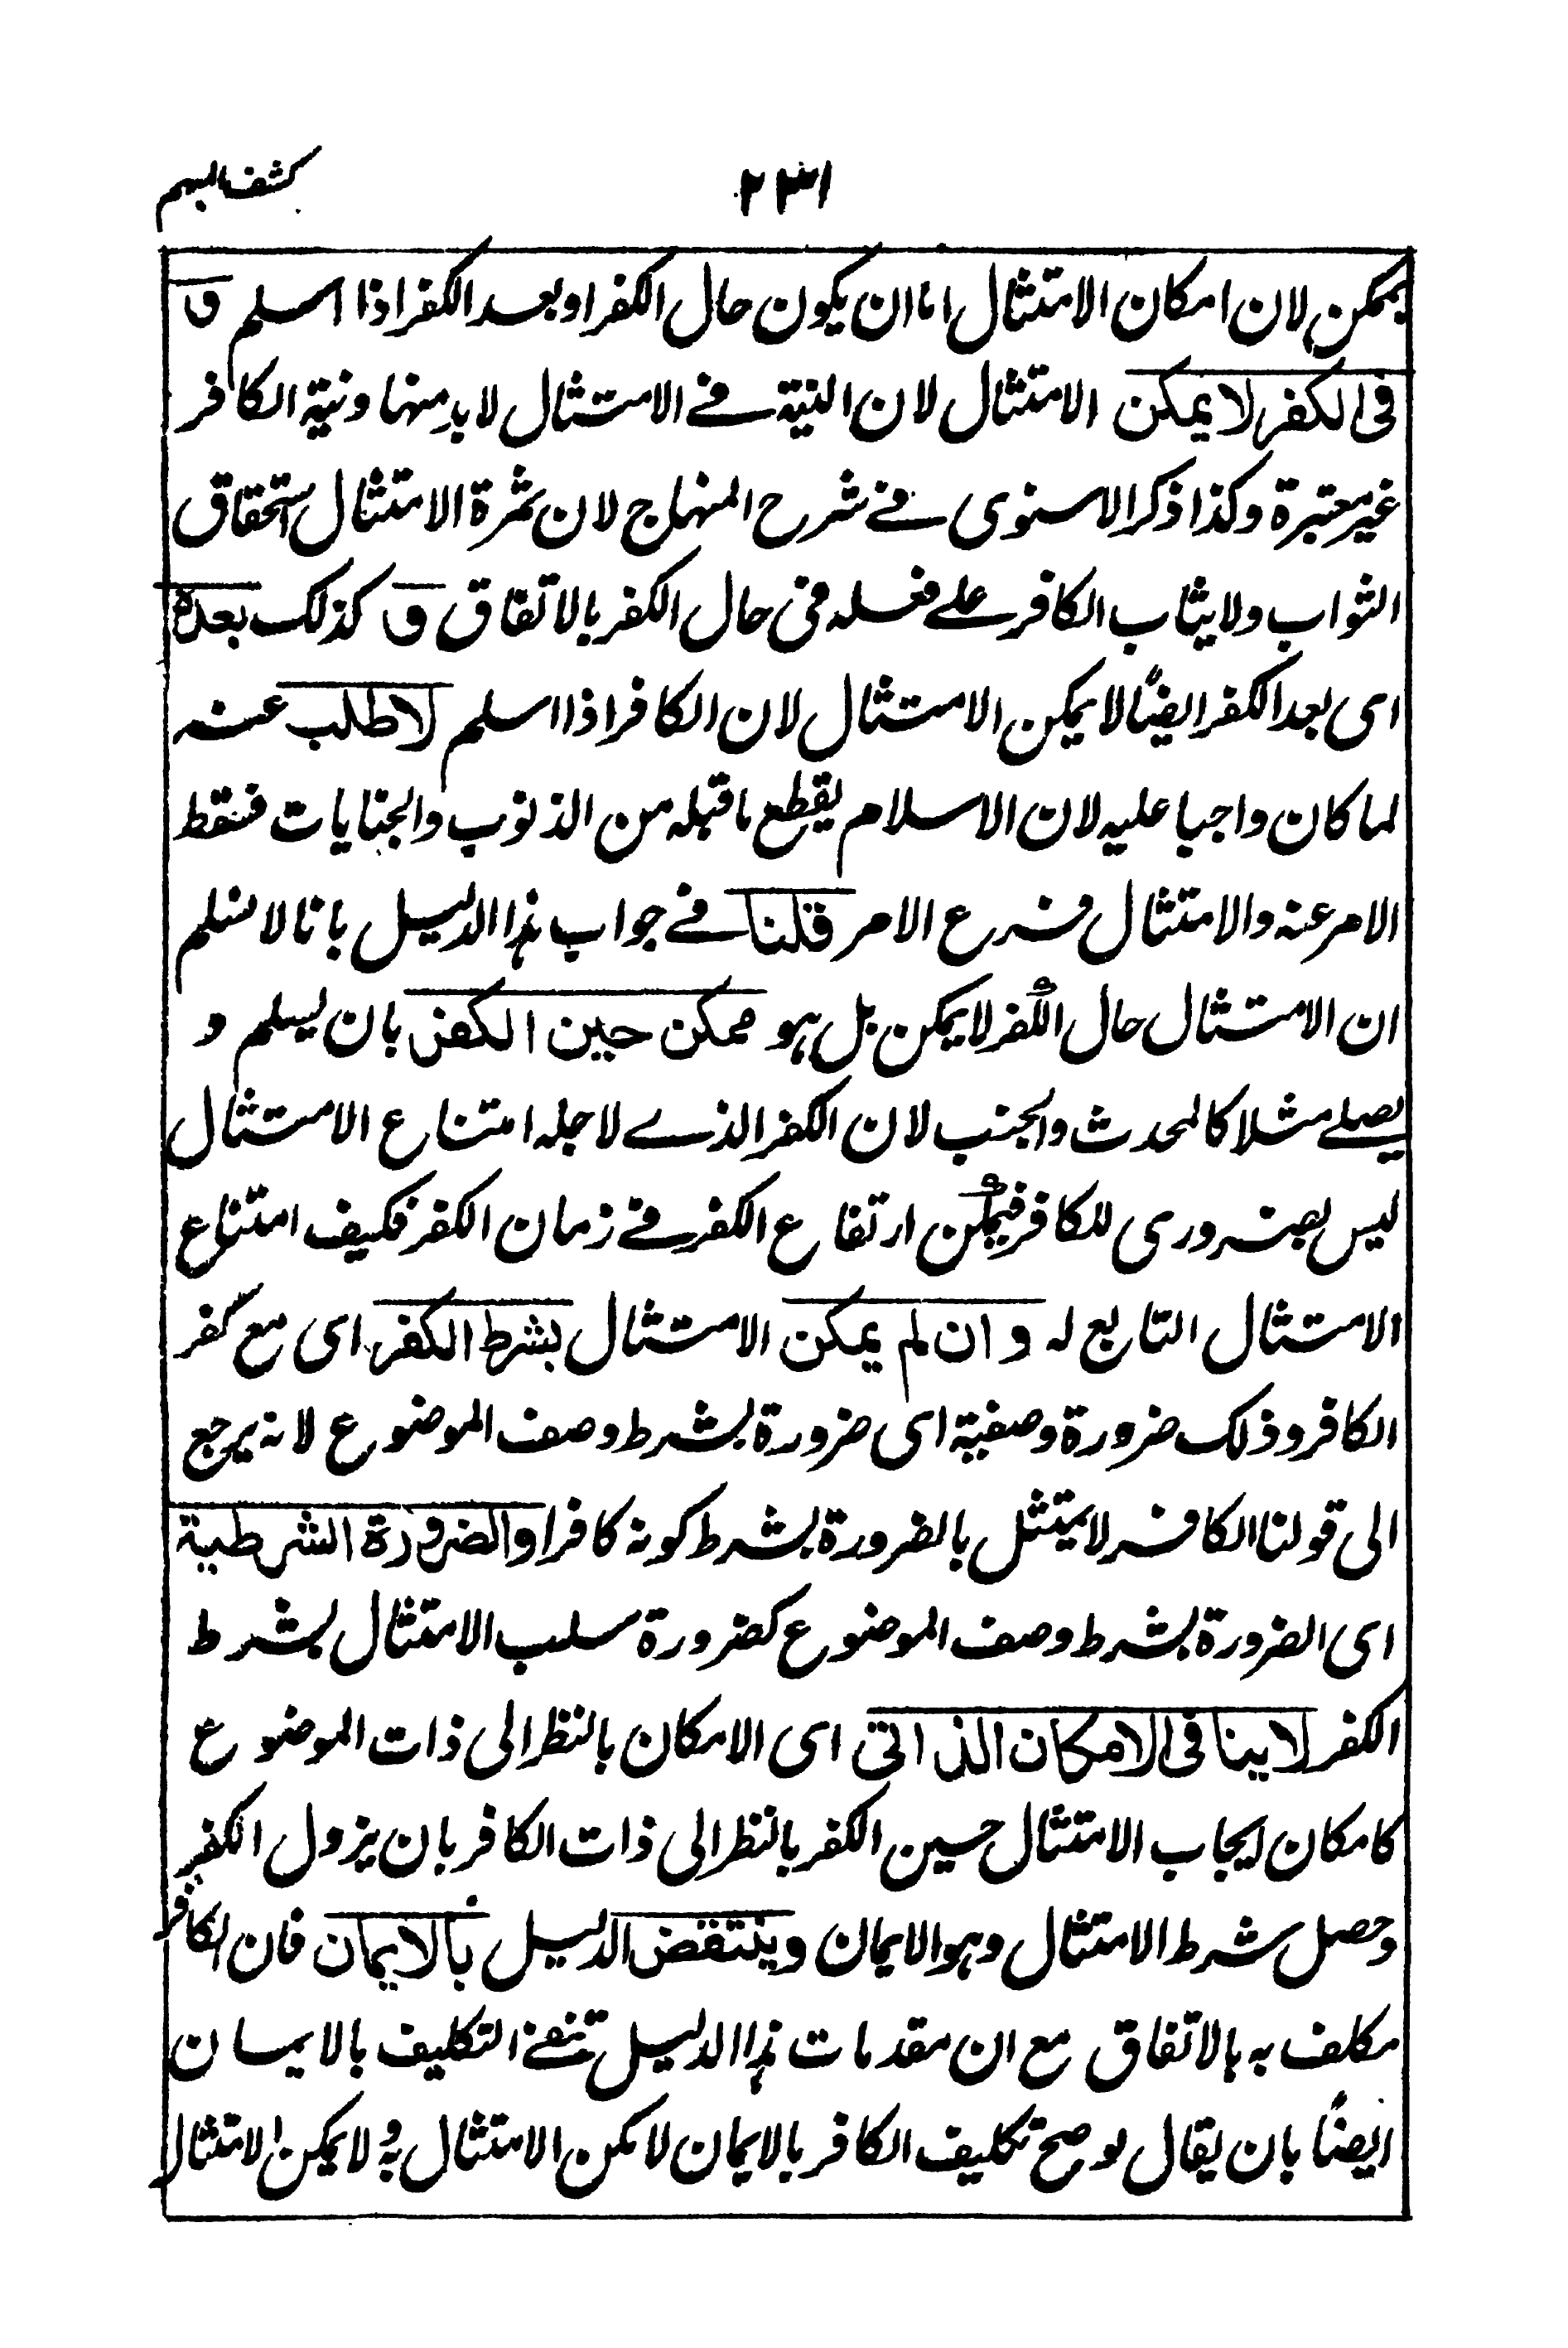 كشف المبهم
٢٣١
يمكن لان امكان الامتثال اما ان يكون حال الكفر او بعد الكفر اذا اسلم و
فى الكفر لا يمكن الامتثال لان النية فے الامتثال لا بد منها ونية الكافر
غير معتبرة وكذا ذكر الاسنوى فے شرح المنهاج لان ثمرة الامتثال استحقاق
الثواب ولا يثاب الكافر علے فعله فى حال الكفر بالاتفاق و كذلك بعده
اى بعد الكفر ايضًا لا يمكن الامتثال لان الكافر اذا اسلم لا طلب عنه
لما كان واجبا عليه لان الاسلام يقطع ما قبله من الذنوب والجنايات فسقط
الامر عنه والامتثال فرع الامر قلنا فے جواب هذا الدليل بانا لا نسلم
ان الامتثال حال الكفر لا يمكن بل هو ممكن حين الكفر بان يسلم و
يصلے مثلا كالمحدث والجنب لان الكفر الذے لاجله امتناع الامتثال
ليس بضرورى للكافر فيمكن ارتفاع الكفر فے زمان الكفر فكيف امتناع
الامتثال التابع له و ان لم يمكن الامتثال بشرط الكفر اى مع كفر
الكافر وذلك ضرورة وصفية اى ضرورة بشرط وصف الموضوع لانه يرجع
الى قولنا الكافر لا يمتثل بالضرورة بشرط كونه كافرا والضرورة الشرطية
اى الضرورة بشرط وصف الموضوع كضرورة سلب الامتثال بشرط
الكفر لا ينافى الامكان الذاتى اى الامكان بالنظر الى ذات الموضوع
كامكان ايجاب الامتثال حين الكفر بالنظر الى ذات الكافر بان يزول الكفر
وحصل شرط الامتثال وهو الايمان وينتقض الدليل بالايمان فان الكافر
مكلف به بالاتفاق مع ان مقدمات هذا الدليل تنفے التكليف بالايمان
ايضًا بان يقال لو صح تكليف الكافر بالايمان لا مكن الامتثال به ولا يمكن الامتثال